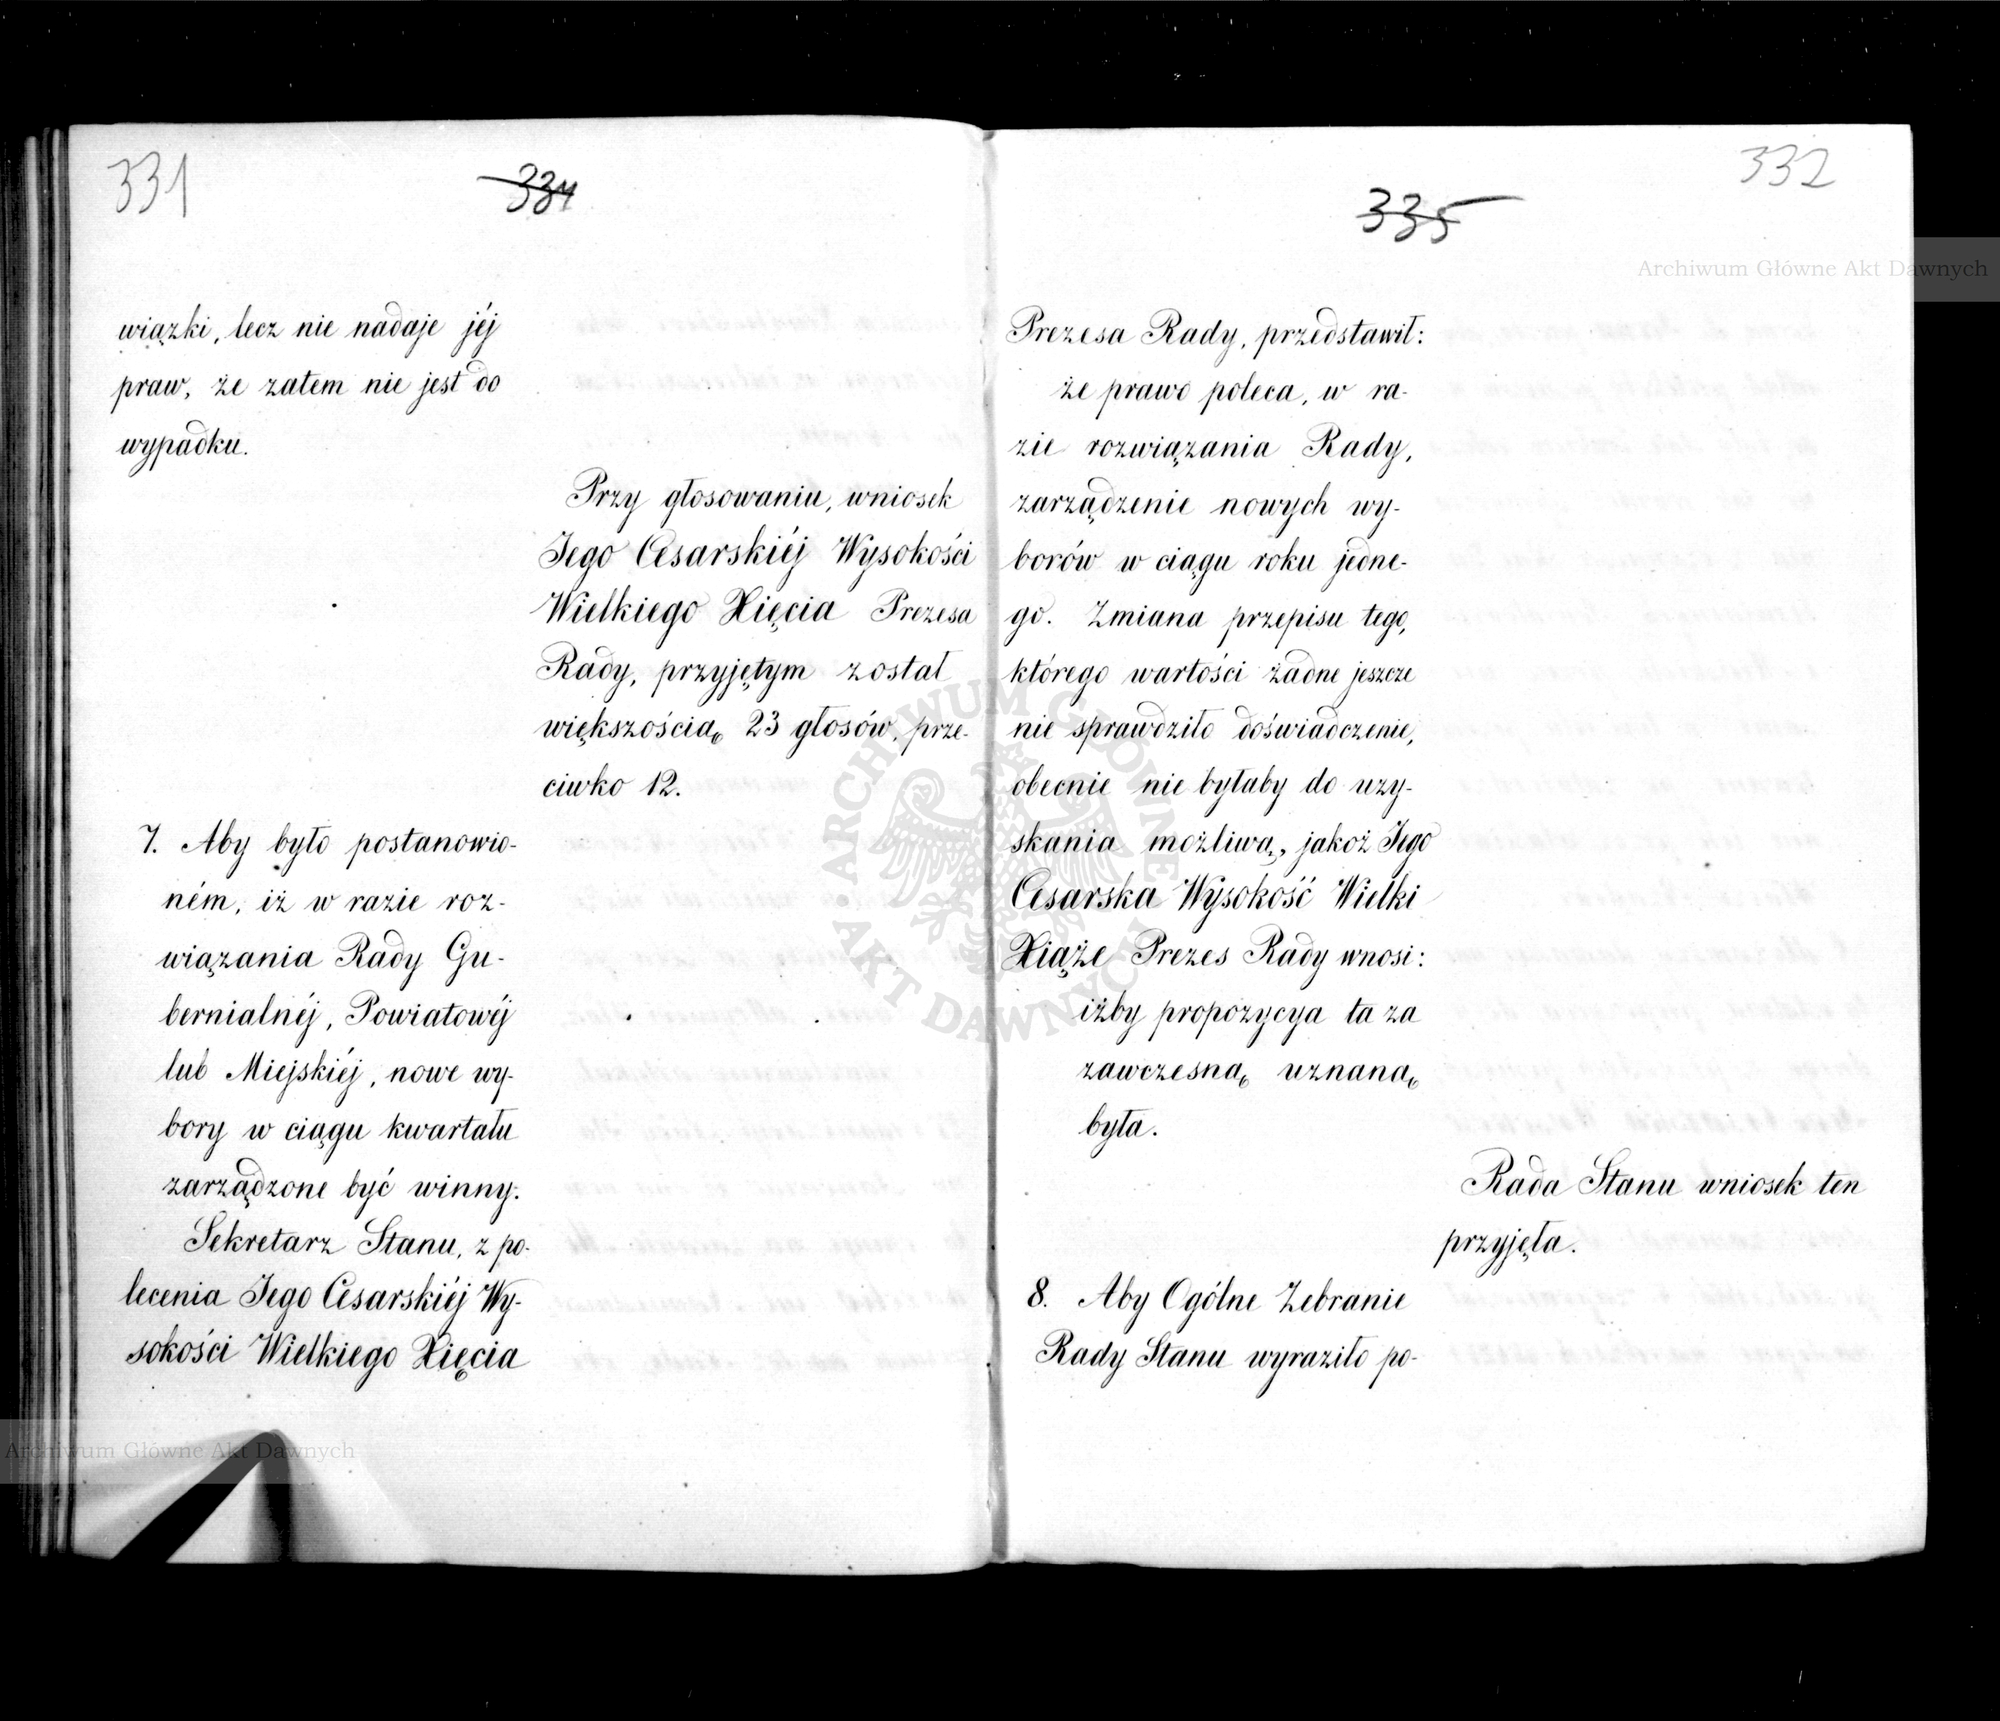 331
334
wiązki, lecz nie nadaje jéj
praw, że zatem nie jest do
wypadku.
Przy głosowaniu, wniosek
Jego Cesarskiéj Wysokości
Wielkiego Xięcia Prezesa
Rady, przyjętym został
większością 23 głosów, prze-
ciwko 12.
7. Aby było postanowio-
ném, iż w razie roz-
wiązania Rady Gu-
bernialnéj, Powiatowéj
lub Miejskiéj, nowe wy-
bory w ciągu kwartału
zarządzone być winny.
Sekretarz Stanu, z po-
lecenia Jego Cesarskiéj Wy-
sokości Wielkiego Xięcia
332
335
Prezesa Rady, przedstawił:
że prawo poleca, w ra-
zie rozwiązania Rady,
zarządzenie nowych wy-
borów w ciągu roku jedne-
go. Zmiana przepisu tego,
którego wartości żadne jeszcze
nie sprawdziło doświadczenie,
obecnie nie byłaby do uzy-
skania możliwą, jakoż Jego
Cesarska Wysokość Wielki
Xiąże Prezes Rady wnosi:
iżby propozycya ta za
zawczesną uznaną
była.
Rada Stanu wniosek ten
przyjęła.
8. Aby Ogólne Zebranie
Rady Stanu wyraziło po-
Archiwum Główne Akt Dawnych
Archiwum Główne Akt Dawnych
ARCHIWUM GŁÓWNE
AKT DAWNYCH